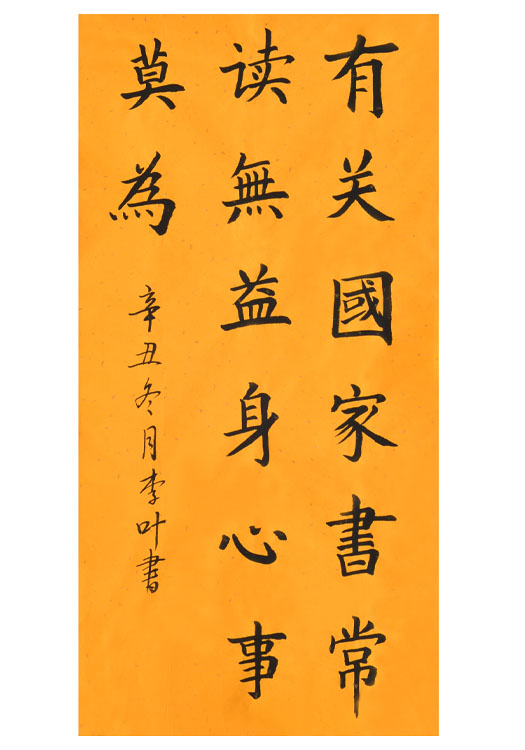 有关國家書常
读無益身心事
莫為
辛丑冬月李叶書